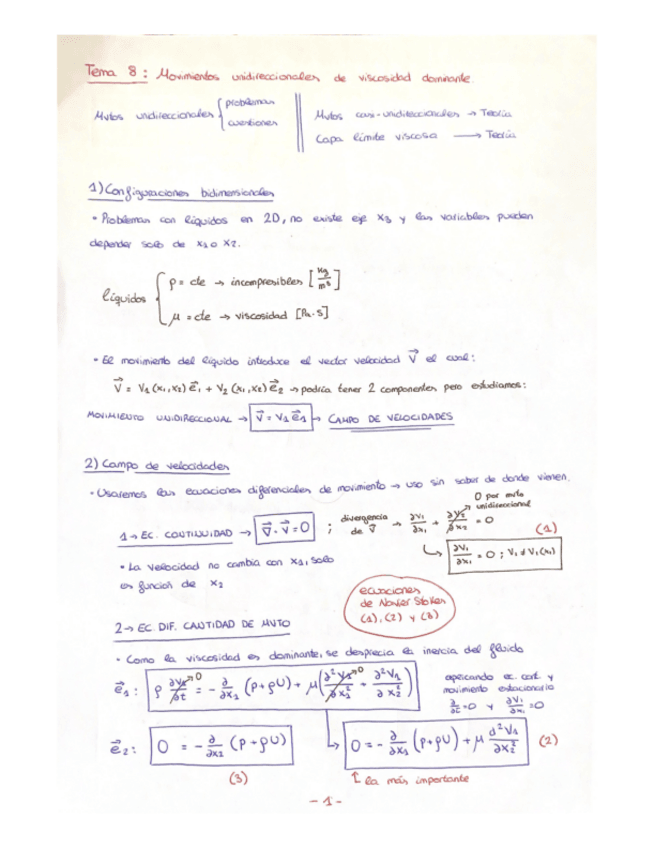 Tema 8: Movimientos unidireccionales de viscosidad dominante.
Mvtos unidireccionales { problemas
cuestiones
Mvtos casi-unidireccionales → Teoría
Capa límite viscosa → Teoría
1) Configuraciones bidimensionales
• Problemas con líquidos en 2D, no existe eje x3 y las variables pueden
depender solo de x1 o x2.
líquidos { ρ = cte → incompresibles [kg/m³]
μ = cte → viscosidad [Pa·s]
• El movimiento del líquido introduce el vector velocidad V⃗ el cual:
V⃗ = V1(x1,x2) e⃗1 + V2(x1,x2) e⃗2 → podría tener 2 componentes pero estudiamos:
MOVIMIENTO UNIDIRECCIONAL → V⃗ = V1 e⃗1 → CAMPO DE VELOCIDADES
2) Campo de velocidades
• Usaremos las ecuaciones diferenciales de movimiento → uso sin saber de donde vienen.
0 por mvto
unidireccional
1 → EC. CONTINUIDAD → ∇⃗ · V⃗ = 0 ; divergencia de V⃗ → ∂V1/∂x1 + ∂V2/∂x2 = 0 (1)
↳ ∂V1/∂x1 = 0 ; V1 ≠ V1(x1)
• La velocidad no cambia con x1, solo
es función de x2
ecuaciones
de Navier Stokes
(1), (2) y (3)
2 → EC. DIF. CANTIDAD DE MVTO
• Como la viscosidad es dominante, se desprecia la inercia del fluido
e⃗1: ρ ∂V1/∂t →0 = - ∂/∂x1 (P+ρU) + μ(∂²V1/∂x1² →0 + ∂²V1/∂x2²)
aplicando ec. cont. y
movimiento estacionario
∂/∂t = 0 y ∂V1/∂x1 = 0
e⃗2: 0 = - ∂/∂x2 (P+ρU)
(3)
↳ 0 = - ∂/∂x1 (P+ρU) + μ d²V1/∂x2² (2)
↑ la más importante
- 1 -